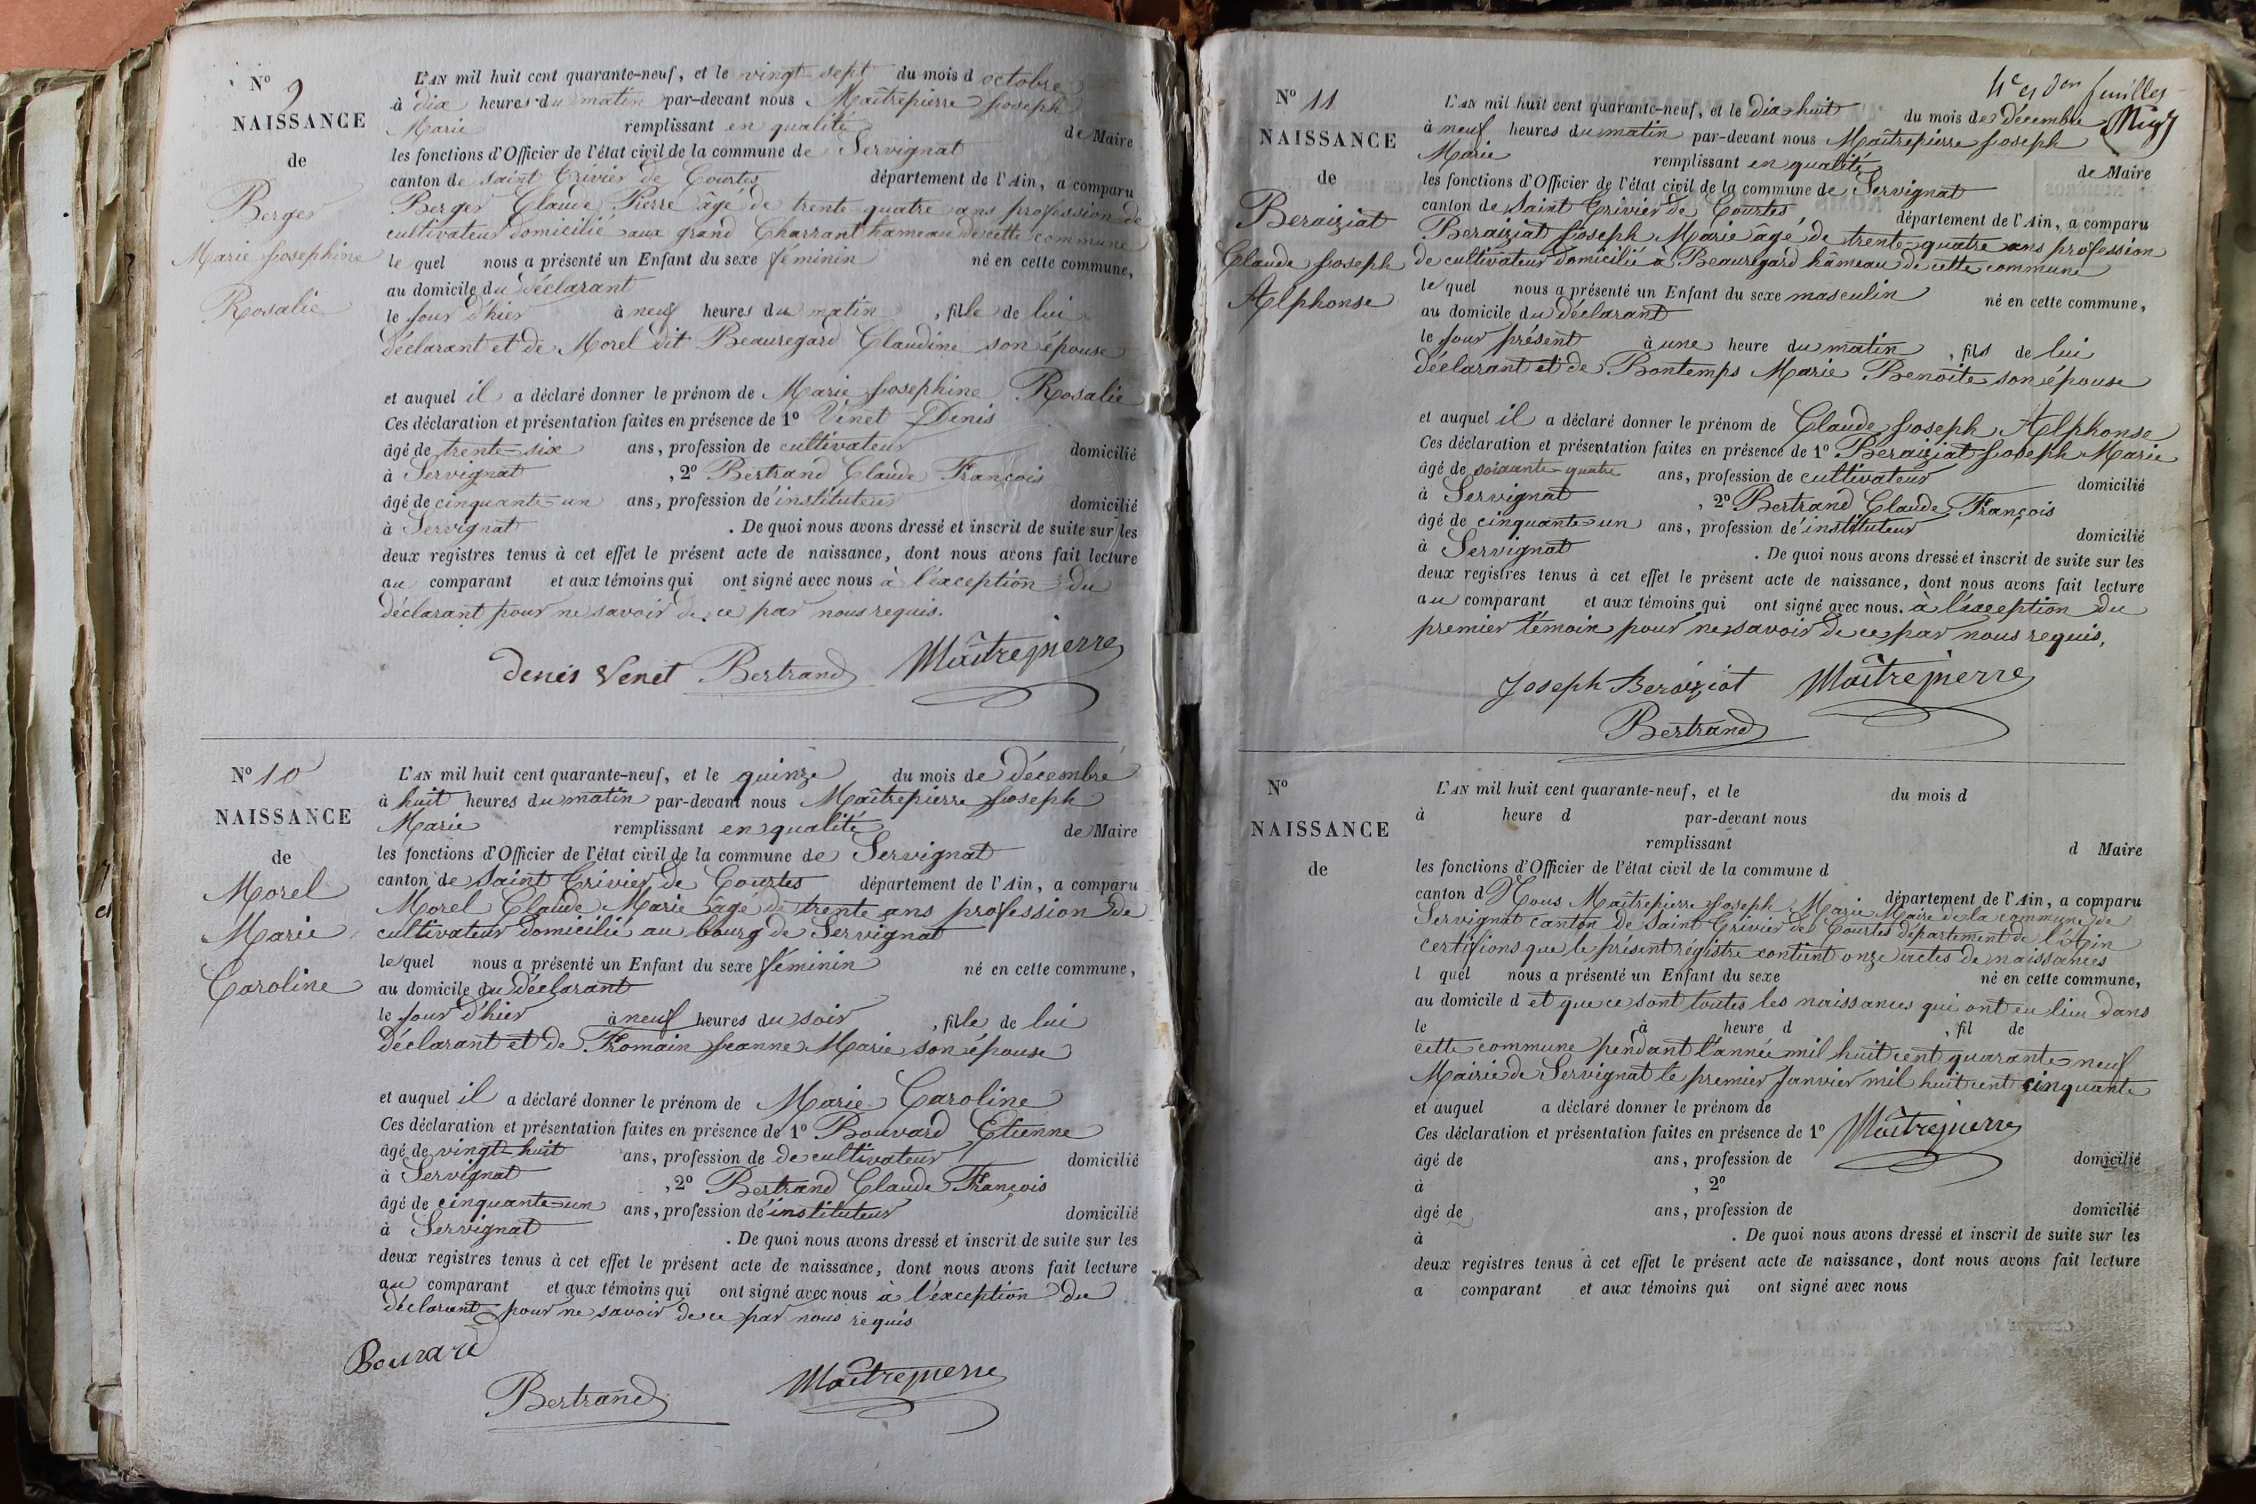 N° 9
NAISSANCE
de
Berger
Marie Josephine
Rosalie
L'AN mil huit cent quarante-neuf, et le vingt sept du mois d octobre
à dix heures du matin par-devant nous Maîtrepierre Joseph
Marie remplissant en qualité de Maire
les fonctions d'Officier de l'état civil de la commune de Servignat
canton de Saint Trivier de Courtes département de l'Ain, a comparu
Berger Claude Pierre âgé de trente quatre ans profession de
cultivateur domicilié aux grand Charrant hameau de cette commune
le quel nous a présenté un Enfant du sexe féminin né en cette commune,
au domicile du déclarant
le jour d'hier à neuf heures du matin, fille de lui
déclarant et de Morel dit Beauregard Claudine son épouse
et auquel il a déclaré donner le prénom de Marie Josephine Rosalie
Ces déclaration et présentation faites en présence de 1° Vénet Denis
âgé de trente-six ans, profession de cultivateur domicilié
à Servignat, 2° Bertrand Claude François
âgé de cinquante-un ans, profession d'instituteur domicilié
à Servignat. De quoi nous avons dressé et inscrit de suite sur les
deux registres tenus à cet effet le présent acte de naissance, dont nous avons fait lecture
au comparant et aux témoins qui ont signé avec nous à l'exception du
déclarant pour ne savoir de ce par nous requis.
denis Venet Bertrand Maîtrepierre
N° 10
NAISSANCE
de
Morel
Marie
Caroline
L'AN mil huit cent quarante-neuf, et le quinze du mois de décembre
à huit heures du matin par-devant nous Maîtrepierre Joseph
Marie remplissant en qualité de Maire
les fonctions d'Officier de l'état civil de la commune de Servignat
canton de Saint Trivier de Courtes département de l'Ain, a comparu
Morel Claude Marie âgé de trente ans profession de
cultivateur domicilié au bourg de Servignat
le quel nous a présenté un Enfant du sexe féminin né en cette commune,
au domicile du déclarant
le jour d'hier à neuf heures du soir, fille de lui
déclarant et de Fromain Jeanne Marie son épouse
et auquel il a déclaré donner le prénom de Marie Caroline
Ces déclaration et présentation faites en présence de 1° Bouvard Etienne
âgé de vingt-huit ans, profession de de cultivateur domicilié
à Servignat, 2° Bertrand Claude François
âgé de cinquante-un ans, profession de instituteur domicilié
à Servignat. De quoi nous avons dressé et inscrit de suite sur les
deux registres tenus à cet effet le présent acte de naissance, dont nous avons fait lecture
au comparant et aux témoins qui ont signé avec nous à l'exception du
déclarant pour ne savoir de ce par nous requis
Bouvard
Bertrand Maîtrepierre
4e et der feuillet
N° 11
NAISSANCE
de
Beraiziat
Claude Joseph
Alphonse
L'AN mil huit cent quarante-neuf, et le dix huit du mois de décembre
à neuf heures du matin par-devant nous Maîtrepierre Joseph
Marie remplissant en qualité de Maire
les fonctions d'Officier de l'état civil de la commune de Servignat
canton de Saint Trivier de Courtes département de l'Ain, a comparu
Beraiziat Joseph Marie âgé de trente-quatre ans profession
de cultivateur domicilié à Beauregard hâmeau de cette commune
le quel nous a présenté un Enfant du sexe masculin né en cette commune,
au domicile du déclarant
le jour présent à une heure du matin, fils de lui
déclarant et de Bontemps Marie Benoite son épouse
et auquel il a déclaré donner le prénom de Claude Joseph Alphonse
Ces déclaration et présentation faites en présence de 1° Beraiziat Joseph Marie
âgé de soixante-quatre ans, profession de cultivateur domicilié
à Servignat, 2° Bertrand Claude François
âgé de cinquante-un ans, profession d'instituteur domicilié
à Servignat. De quoi nous avons dressé et inscrit de suite sur les
deux registres tenus à cet effet le présent acte de naissance, dont nous avons fait lecture
au comparant et aux témoins qui ont signé avec nous. à l'exception du
premier témoin pour ne savoir de ce par nous requis,
Joseph Beraiziat Maîtrepierre
Bertrand
N°
NAISSANCE
de
L'AN mil huit cent quarante-neuf, et le du mois d
à heure d par-devant nous
remplissant d Maire
les fonctions d'Officier de l'état civil de la commune d
canton d département de l'Ain, a comparu
Nous Maîtrepierre Joseph Marie Maire de la commune de
Servignat canton de Saint Trivier de Courtes département de l'Ain
certifions que le présent régistre contient onze actes de naissances
l quel nous a présenté un Enfant du sexe né en cette commune,
au domicile d et que ce sont toutes les naissances qui ont eu lieu dans
le à heure d, fil de
cette commune pendant l'année mil huit cent quarante-neuf
Mairie de Servignat le premier Janvier mil huit cent cinquante
et auquel a déclaré donner le prénom de
Ces déclaration et présentation faites en présence de 1° Maîtrepierre
âgé de ans, profession de domicilié
à , 2°
âgé de ans, profession de domicilié
à . De quoi nous avons dressé et inscrit de suite sur les
deux registres tenus à cet effet le présent acte de naissance, dont nous avons fait lecture
a comparant et aux témoins qui ont signé avec nous